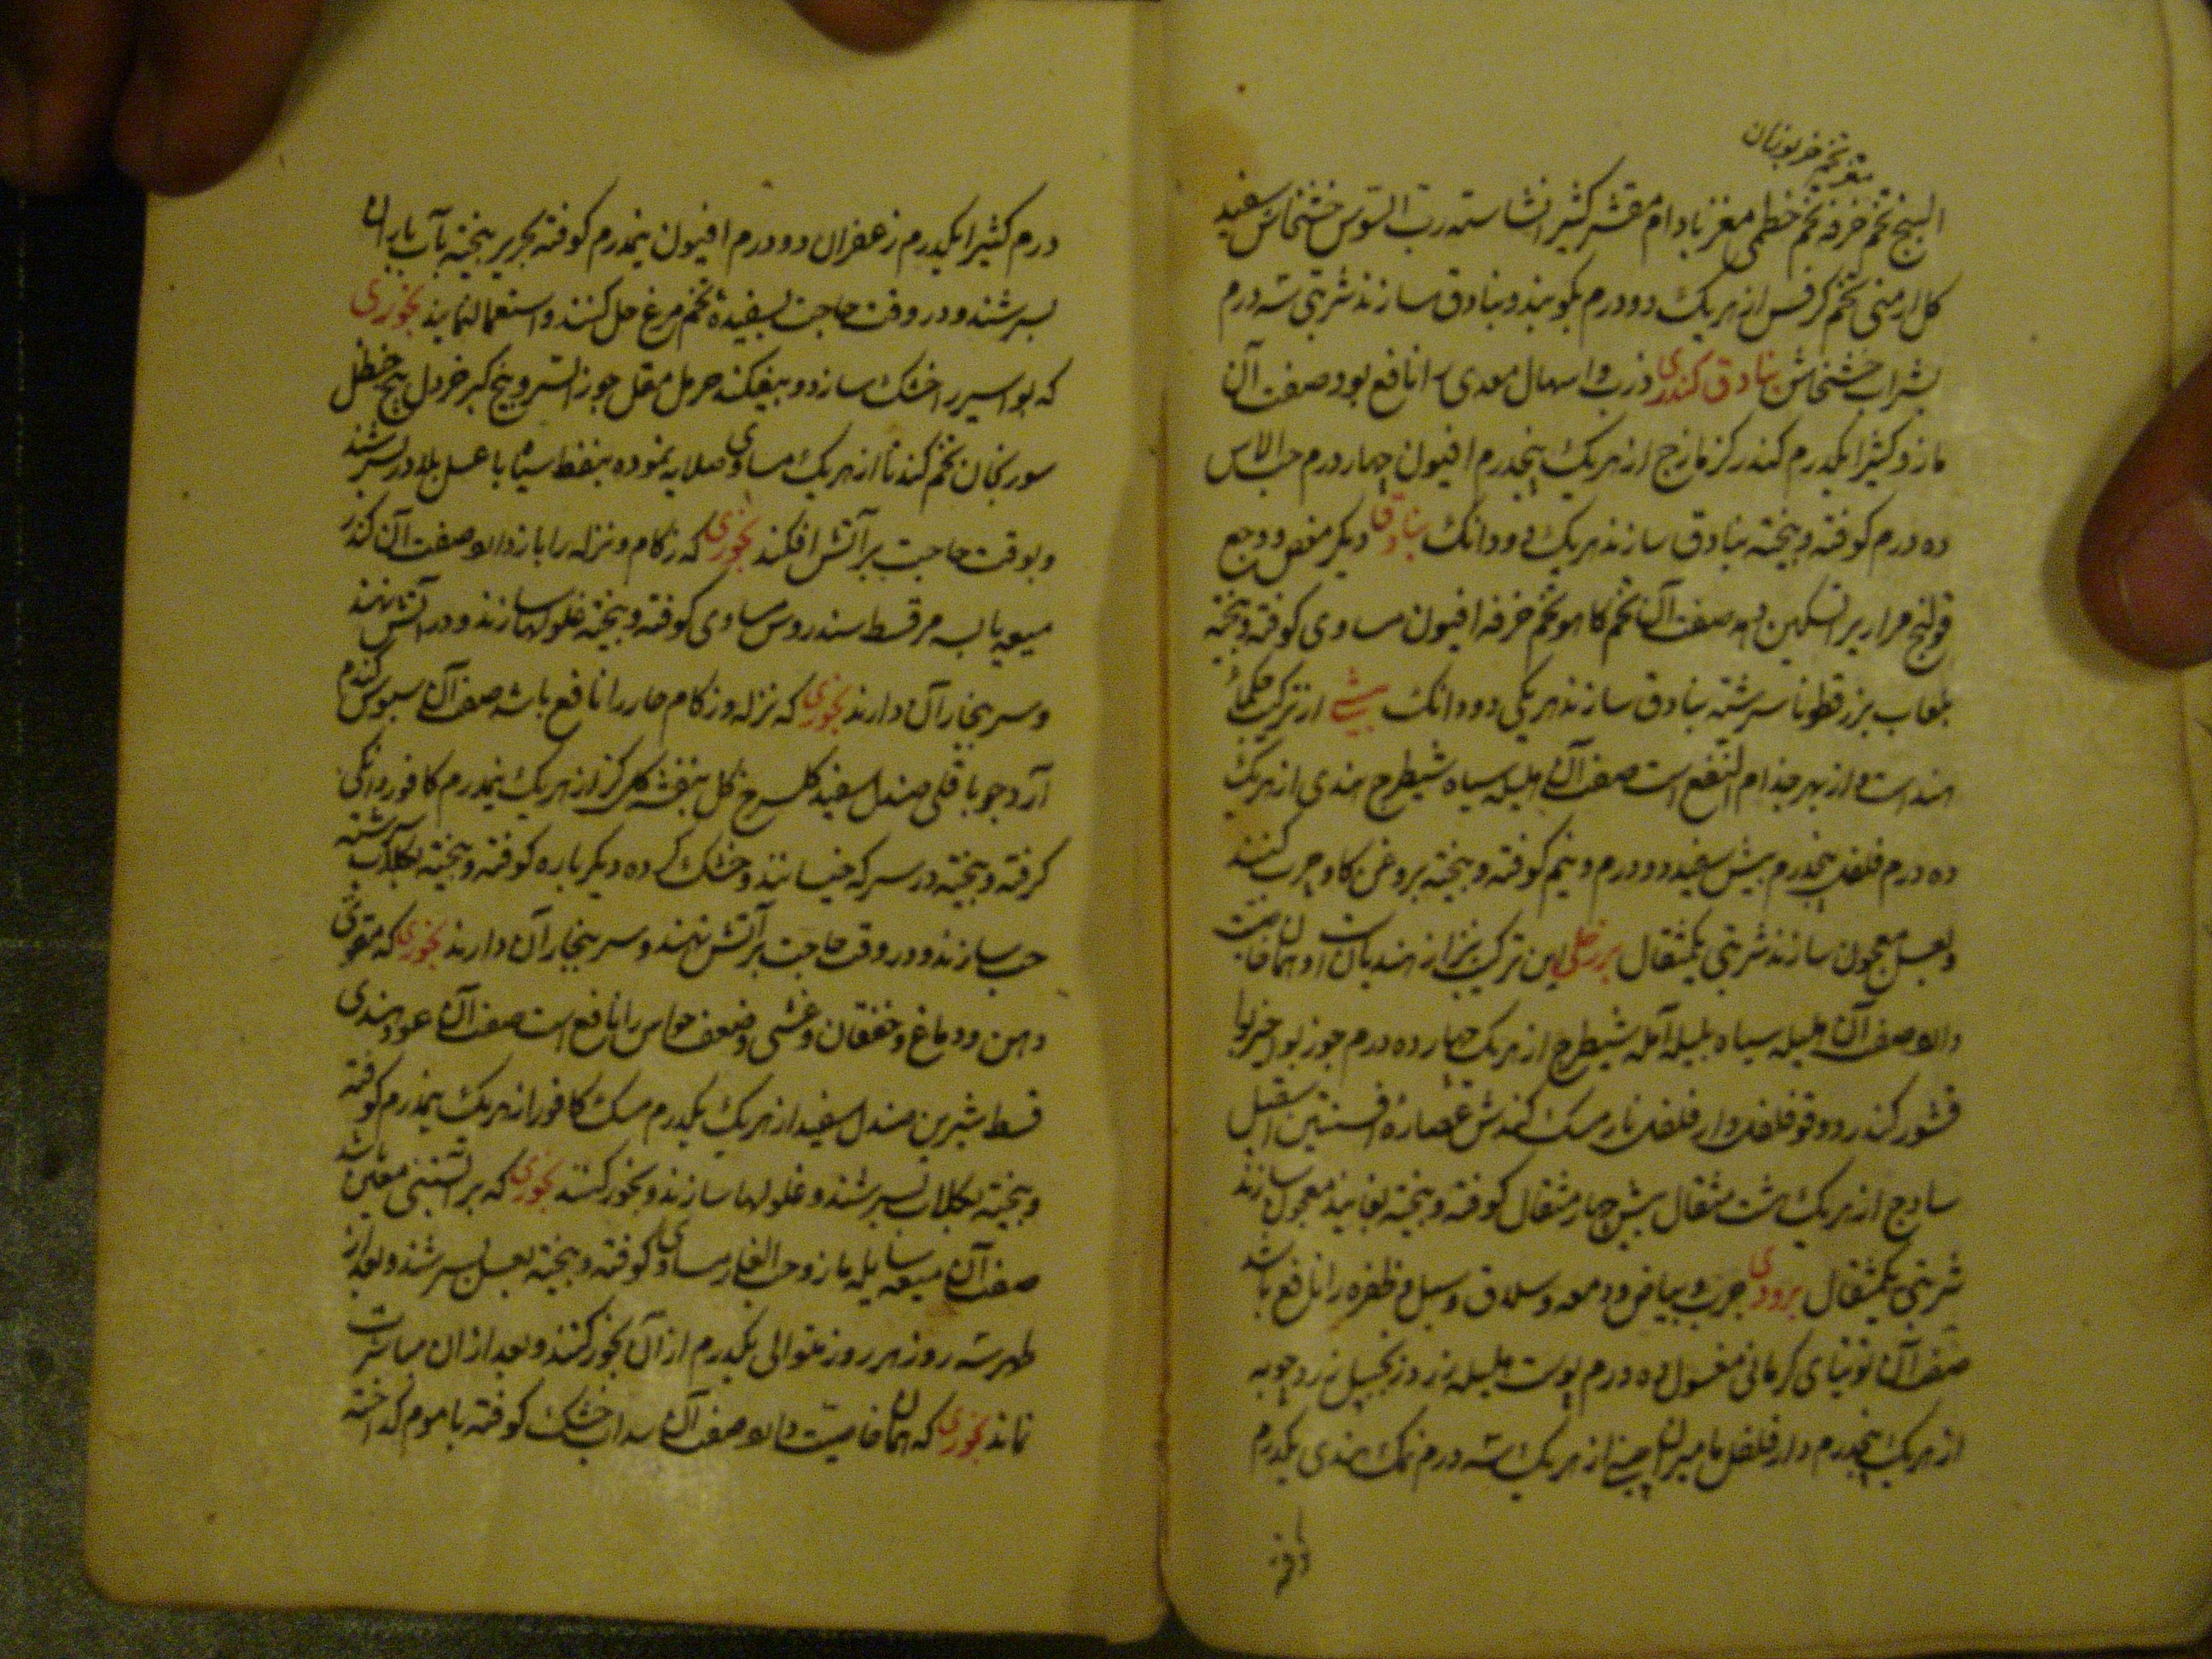 مغز تخم خربوزتان
البنج تخم خرفه تخم خطمی مغز بادام مقشر کثیرا نشاسته رب السوس خشخاش سفید
کل ارمنی تخم کرفس از هریک دودرم بکوبند و بنادق سازند شربتی سه درم
بشراب خشخاش بنادق کندری ذرب و اسهال معدی را نافع بود صفت آن
مازو کثیرا یکدرم کندر کزمازج از هریک پنجدرم افیون چهاردرم حب الاس
ده درم کوفته و بیخته بنادق سازند هریک دودانک بنادق دیکر مغص و وجع
قولنج مراری را تسکین دهد صفت آن تخم کاهو تخم خرفه افیون مساوی کوفته و بیخته
بلعاب بزرقطونا سرشته بنادق سازند هریکی دودانک بیشی از ترکیب حکماء
هند است و از بهر جذام النفع است صفت آن هلیله سیاه شیطرج هندی از هریک
ده درم فلفل پنجدرم بیش سفید دودرم و نیم کوفته و بیخته بروغن کاو چرب کنند
و بعسل معجون سازند شربتی یکمثقال بزرجلی این ترکیب نیز از هندیان است و همان خاصیت
دارد صفت آن هلیله سیاه بلیله آمله شیطرج از هریک چهارده درم جوز بوا خیربوا
قشور کندر دوقو فلفل دارفلفل نارمسک کندش عصاره افسنتین اسقیل
سادج از هریک هشت مثقال بیش چهار مثقال کوفته و بیخته بفانیذ معجون سازند
شربتی یکمثقال برودی جرب و بیاض و دمعه و سلاق و سبل و ظفره را نافع باشد
صفت آن توتیای کرمانی مغسول ده درم پوست هلیله زرد زنجبیل زردچوبه
از هریک پنجدرم دارفلفل مامیران چینی از هریک سه درم نمک هندی یکدرم
درم کثیرا یکدرم زعفران دودرم افیون نیمدرم کوفته بحریر بیخته بآب باران
بسرشند و در وقت حاجت بسفیده تخم مرغ حل کنند و استعمال نمایند بخوری
که بواسیر را خشک سازد و بیفکند حرمل مقل جوز السرو بیخ کبر خردل بیخ حنظل
سورنجان تخم کندنا از هریک مساوی صلایه نموده بنفط سیاه با عسل بلادر بسرشند
و بوقت حاجت بر آتش افکند بخوری که زکام و نزله را باز دارد صفت آن کندر
میعه یابسه مر قسط سندروس مساوی کوفته و بیخته غلولها سازند و در آتش نهند
و سر ببخار آن دارند بخوری که نزله و زکام حار را نافع باشد صفت آن سبوس کندم
آرد جو باقلی صندل سفید کلسرخ کل بنفشه کل کز از هریک نیمدرم کافور دانکی
کرفته و بیخته در سرکه خیسانند و خشک کرده دیکر باره کوفته و بیخته بکلاب سرشته
حب سازند و در وقت حاجت بر آتش نهند و سر ببخار آن دارند بخوری که مقوی
دهن و دماغ و خفقان و غشی و ضعف حواس را نافع است صفت آن عود هندی
قسط شیرین صندل سفید از هریک یکدرم مسک کافور از هریک نیمدرم کوفته
و بیخته بکلاب بسرشند و غلولها سازند و بخور کنند بخوری که بر آبستنی معین باشد
صفت آن میعه سایله مازو حب الغار مساوی کوفته و بیخته بعسل بسرشند و بعد از
طهر سه روز هر روز متوالی یکدرم از آن بخور کنند و بعد از ان مباشرت
نمایند بخوری که همان خاصیت دارد صفت آن سداب خشک کوفته با موم کداخته